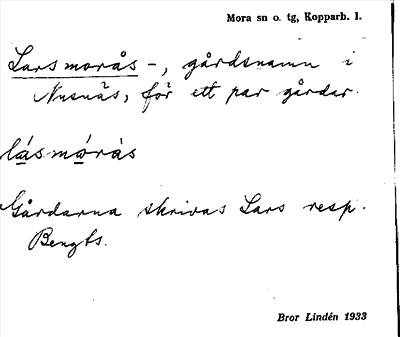 Mora sn o. tg, Kopparb. l.
Larsmorås -, gårdsnamn i
Nusnäs, för ett par gårdar.
lásmóràs
Gårdarna skrivas Lars resp.
Bengts.
Bror Lindén 1933